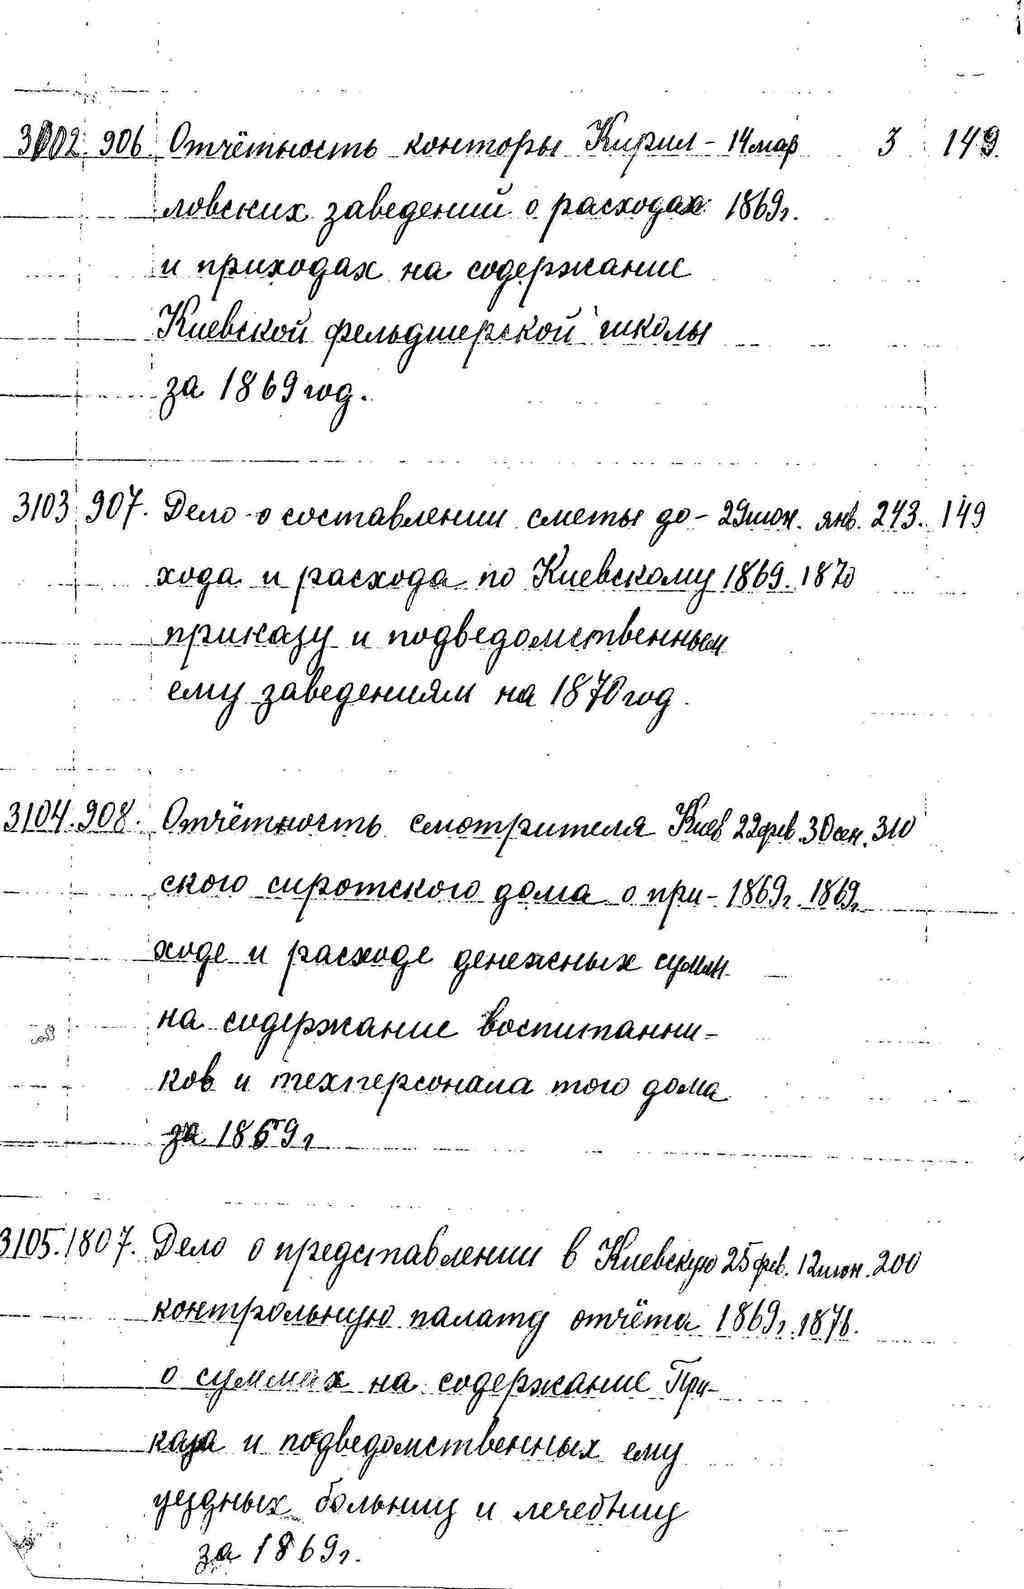 3102. 906. Отчётность конторы Кирил- 14 мар 3 149.
ловских заведений о расходах 1869г.
и приходах на содержание
Киевской фельдшерской школы
за 1869 год.
3103 907. Дело о составлении сметы до- 29 июн. янв. 243. 149
хода и расхода по Киевскому 1869. 1870
приказу и подведомственным
ему заведениям на 1870 год.
3104. 908. Отчётность смотрителя Киев 22 фев. 30 сен. 310
ского сиротского дома о при- 1869г. 1869г.
ходе и расходе денежных сумм
на содержание воспитанни-
ков и техперсонала того дома
за 1869г
3105. 1807. Дело о представлении в Киевскую 25 фев. 12 июн. 200
контрольную палату отчёта 1869г. 1876.
о суммах на содержание При-
каза и подведомственных ему
уездных больниц и лечебниц
за 1869г.